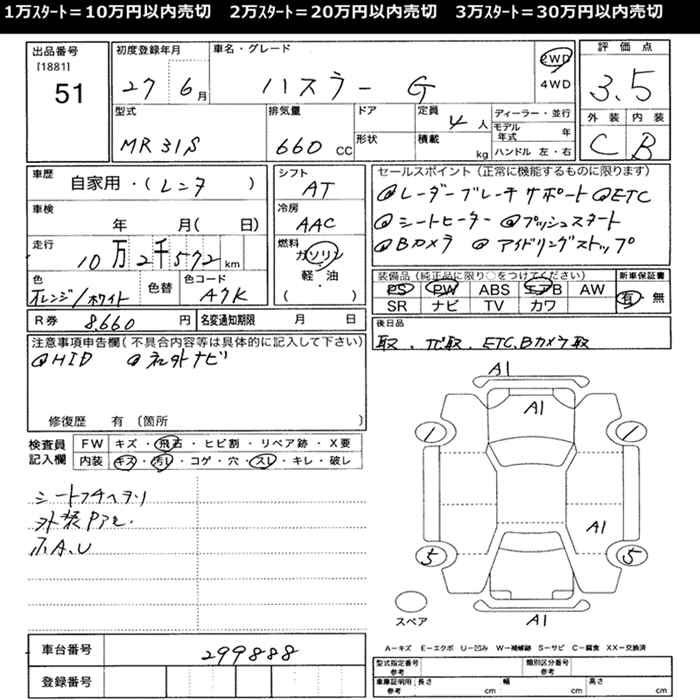 1万スタート=10万円以内売切 2万スタート=20万円以内売切 3万スタート=30万円以内売切
出品番号
[1881]
51
初度登録年月
27 6月
車名・グレード
ハスラー G
2WD
4WD
評価点
3.5
外装 内装
C B
型式
MR31S
排気量
660 CC
ドア
形状
定員
4人
積載
kg
ディーラー・並行
モデル年式 年
ハンドル 左・右
車歴
自家用・(レンタ)
車検
年 月( 日)
走行
10万2千572km
色
オレンジ/ホワイト
色替
色コード
A7K
シフト
AT
冷房
AAC
燃料
ガソリン
・
軽・油
( )
セールスポイント(正常に機能するものに限ります)
@レーダーブレーキサポート @ETC
@シートヒーター @プッシュスタート
@Bカメラ @アイドリングストップ
装備品(純正品に限り○をつけてください)
PS PW ABS エアB AW
SR ナビ TV カワ
新車保証書
有・無
R券 8,660円
名変通知期限 月 日
後日品
取、ナビ取、ETC,Bカメラ取
注意事項申告欄(不具合内容等は具体的に記入して下さい)
@HID @社外ナビ
修復歴 有 〔箇所 〕
検査員
記入欄
FW キズ・飛石・ヒビ割・リペア跡・X要
内装 キズ・汚レ・コゲ・穴・スレ・キレ・破レ
シートフチヘタリ
外装
小A,U
A1
A1
1
1
A1
5
5
スペア
A1
A-キズ E-エクボ U-凹み W-補修跡 S-サビ C-腐食 XX-交換済
車台番号
299888
登録番号
型式指定番号
参考
類別区分番号
参考
車庫証明用
参考
長さ cm
幅 cm
高さ cm